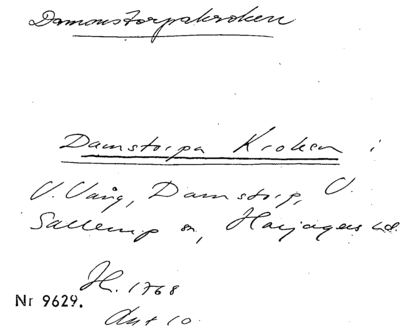 Damonstorpakroken
Damstorpa Kroken i
V. Vång, Damstorp, V.
Sallerup sn, Harjagers hd.
H. 1768
Nr 9629.
Akt 10